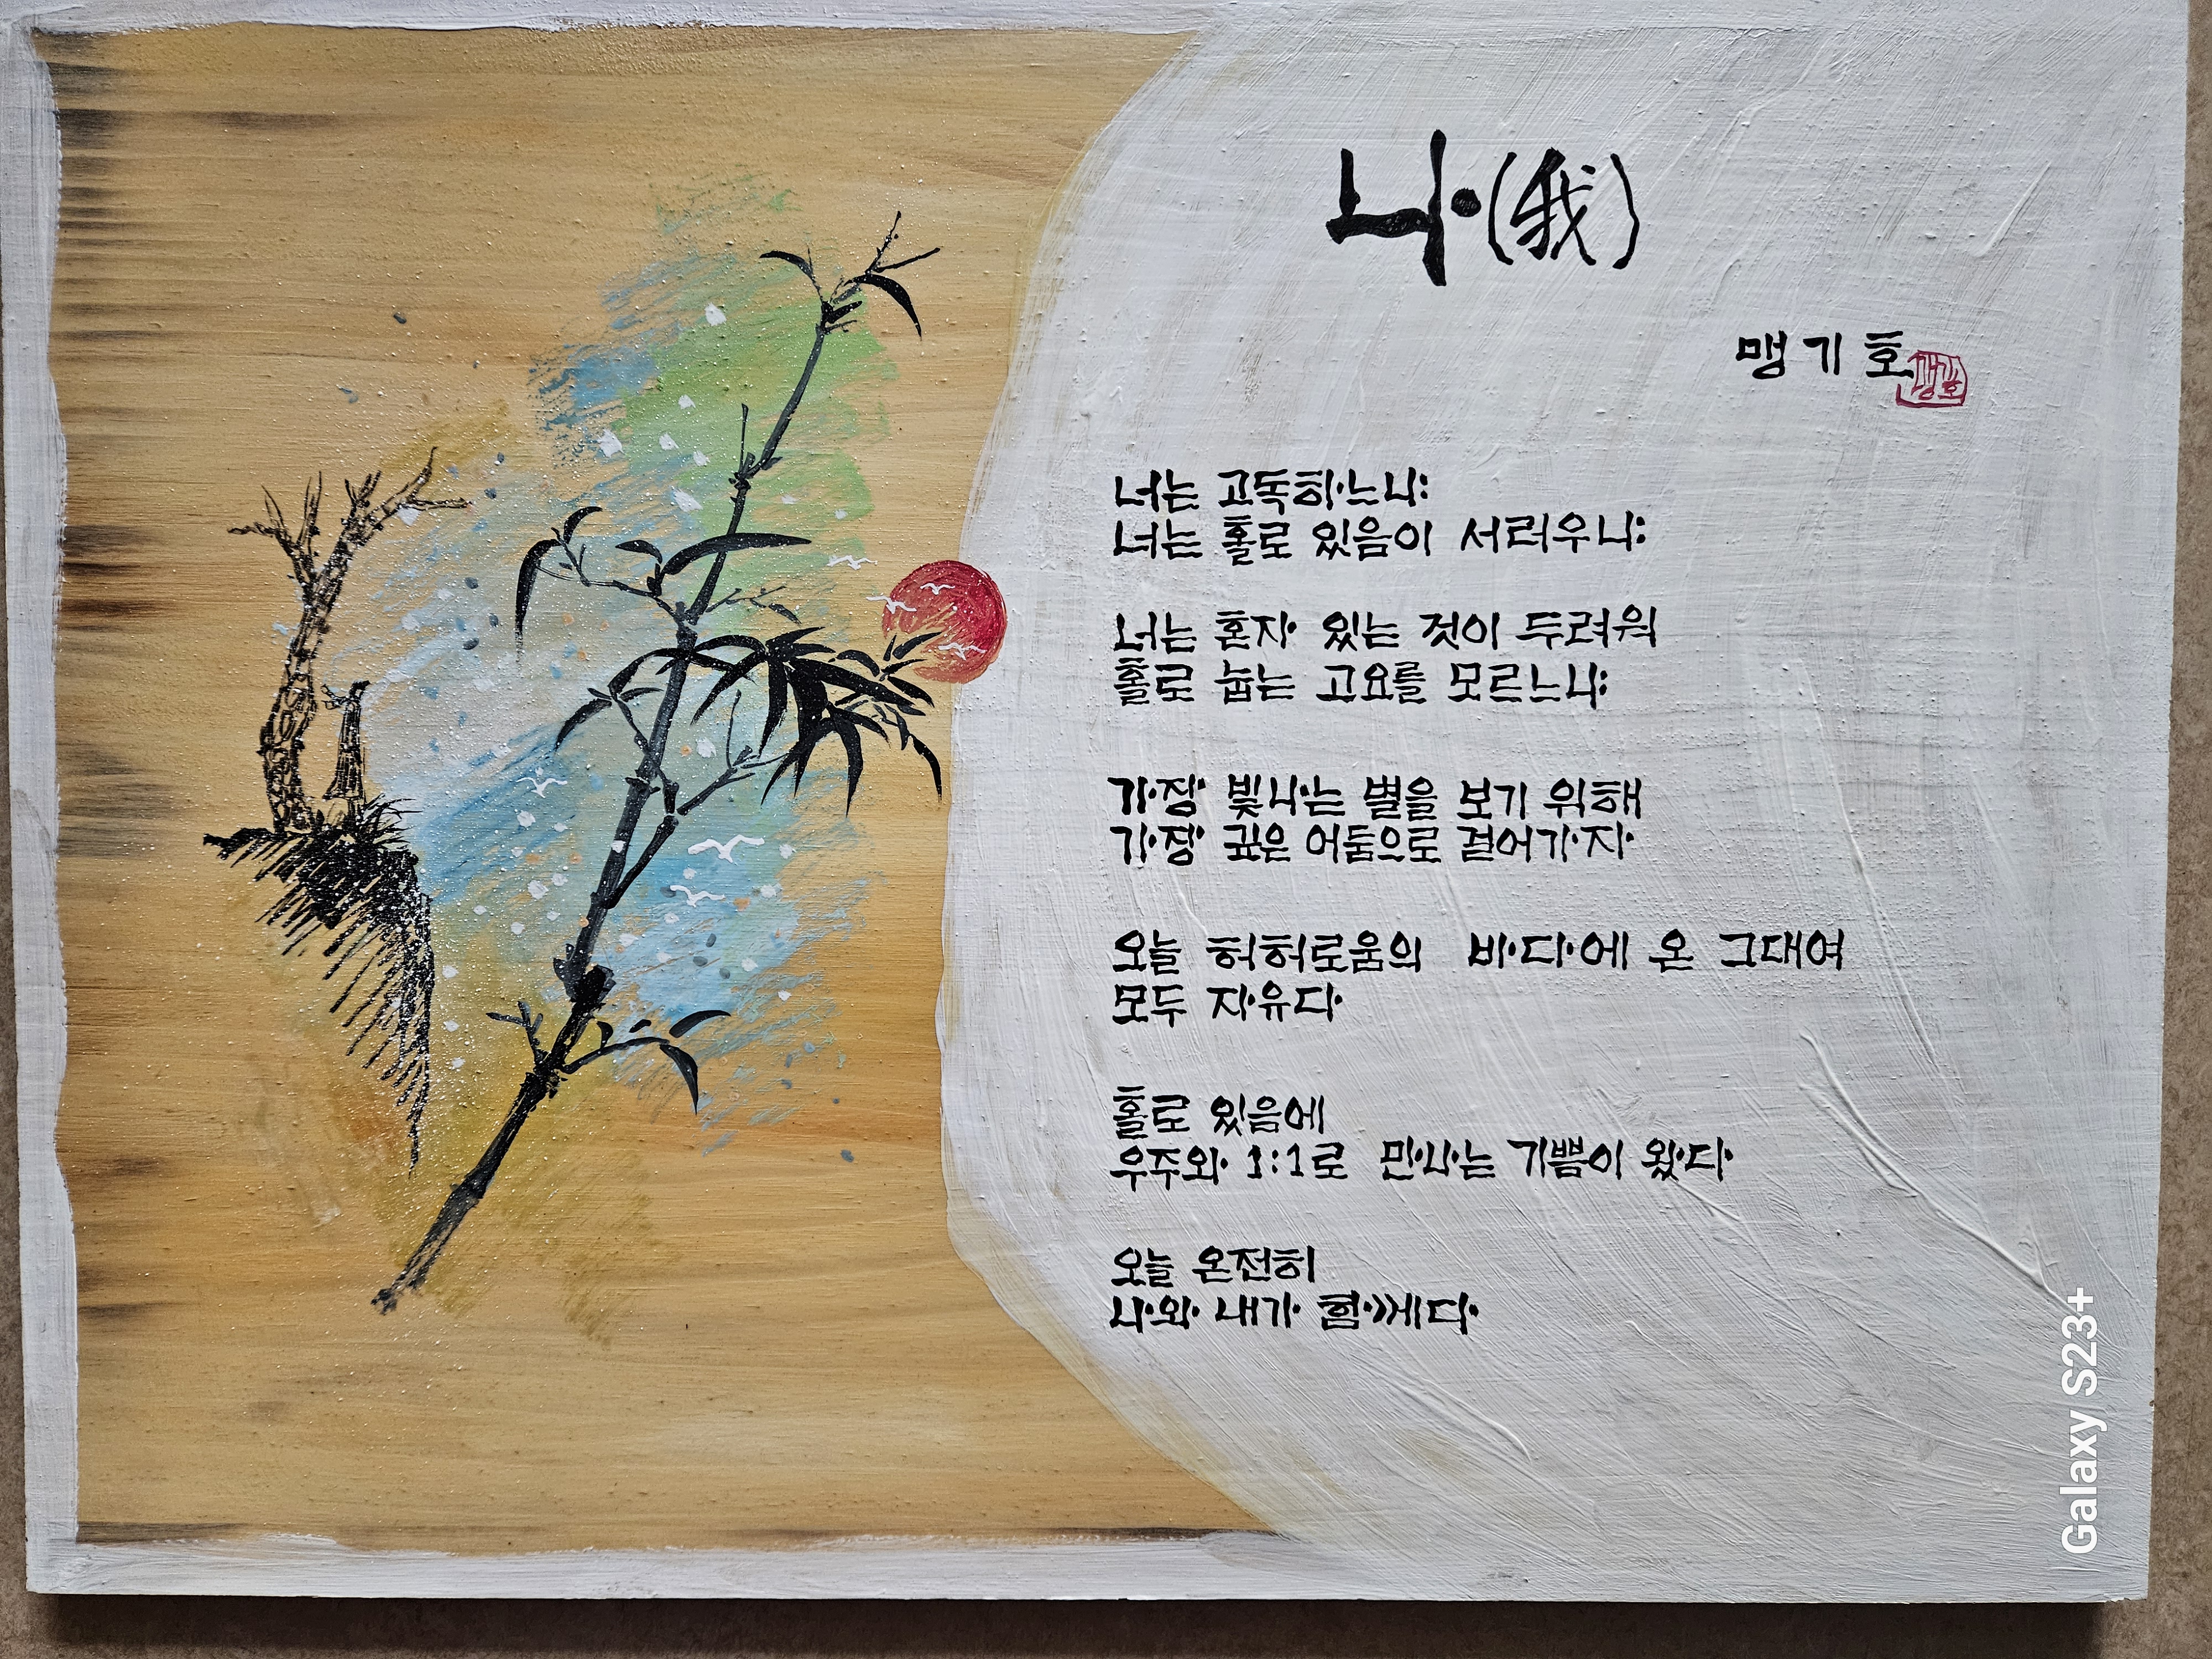 나(我)
맹기호
맹기호
너는 고독하느냐:
너는 홀로 있음이 서러우냐:
너는 혼자 있는 것이 두려워
홀로 눕는 고요를 모르느냐:
가장 빛나는 별을 보기 위해
가장 깊은 어둠으로 걸어가자
오늘 허허로움의 바다에 온 그대여
모두 자유다
홀로 있음에
우주와 1:1로 만나는 기쁨이 왔다
오늘 온전히
나와 내가 함께다
Galaxy S23+